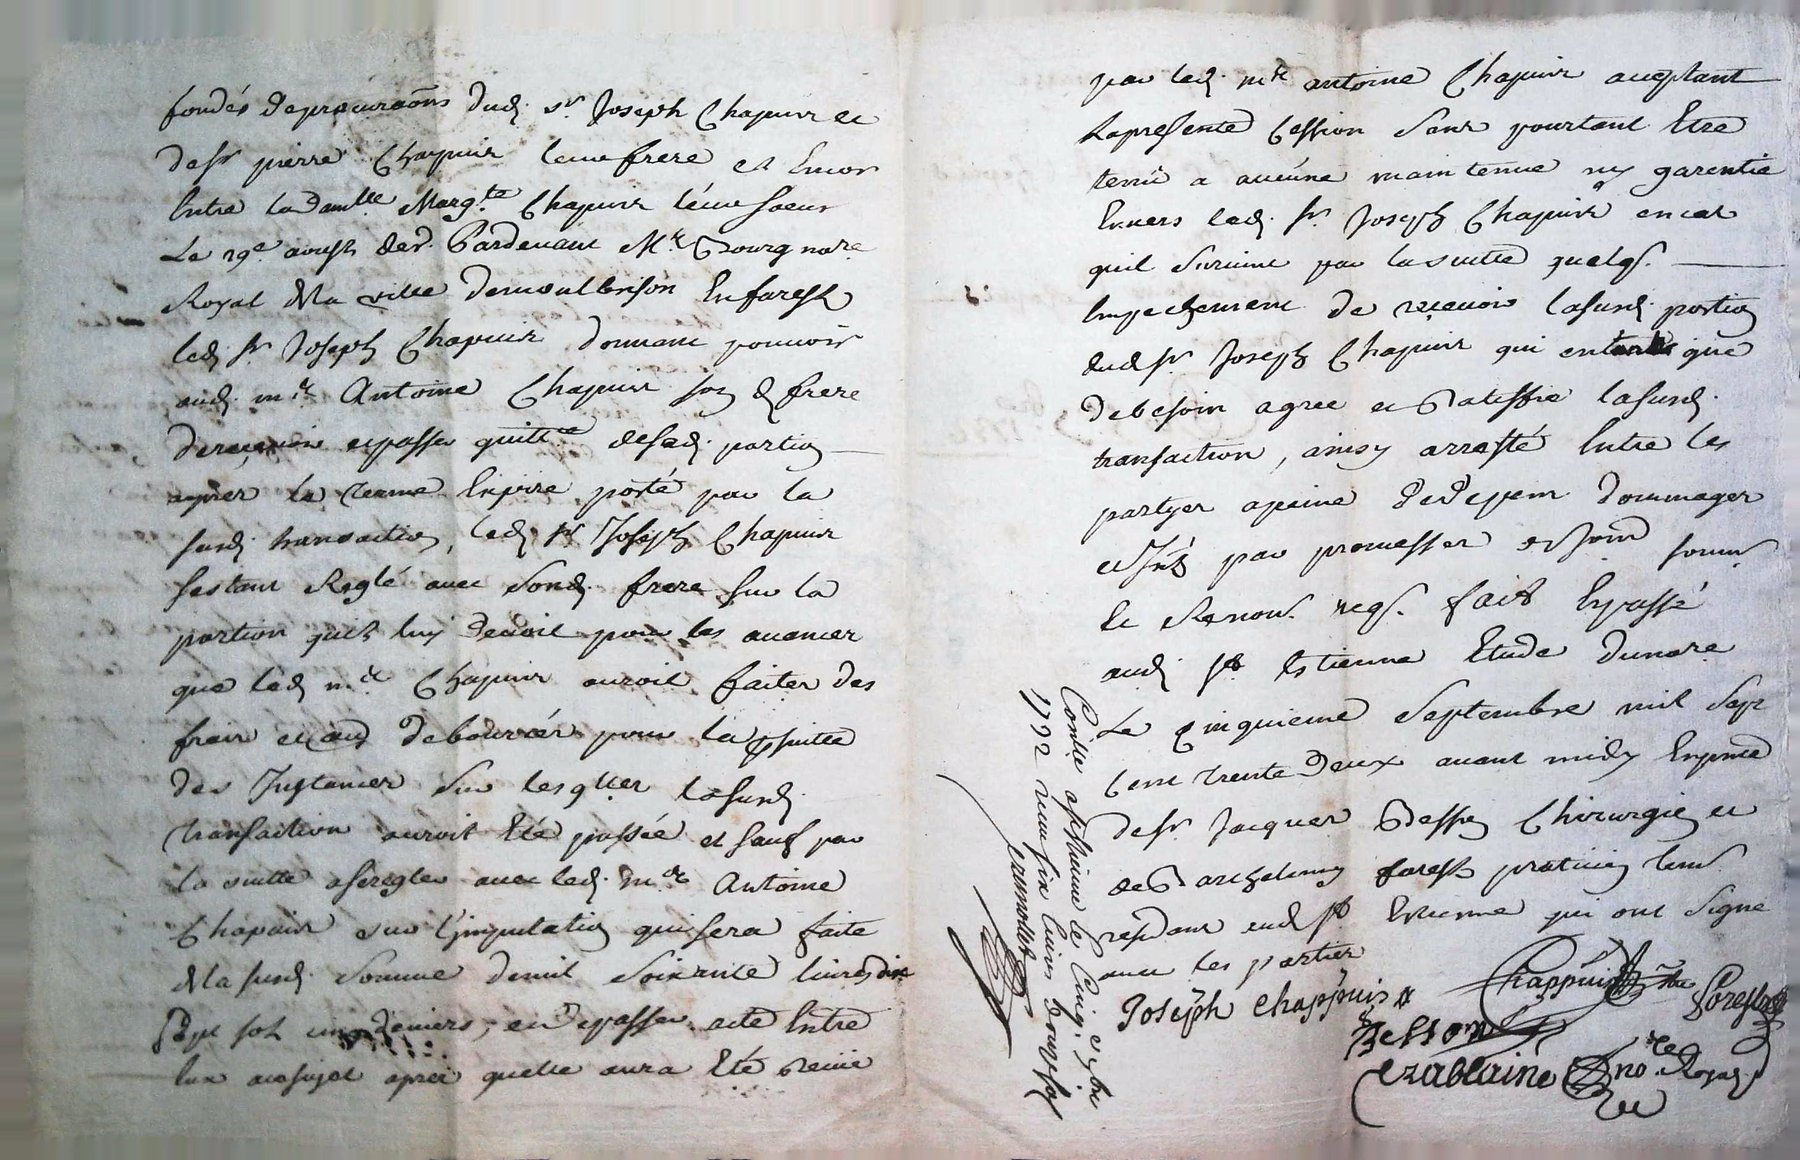 fondés de procuraõns dud. sr. Joseph Chapuir et
de sr pierre Chapuir leur frere et Encor
Entre la damlle Margte Chapuir leur soeur
Le 29e aoust der. Pardevant Mr. Bourg nore
Royal de la ville de montbrison En forest
led. sr Joseph Chapuir donnant pouvoir
aud. mre Antoine Chapuir son d. frere
de recevoir et passer quittce de sad. portion
apres le terme Expiré porté par la
susd. transaction, led. sr Joseph Chapuir
sestant Reglé avec sond. frere sur la
portion quil luy devoit pour les avances
que led. mre Chapuir auroit faites des
frais et deboursés pour la poursuitte
des Instances sur lesqlles la susd.
transaction auroit Eté passée et sauf par
la suitte a se regler avec led. mre Antoine
Chapuir sur l'imputation qui sera faite
de la susd. somme de mil soixante livres dix
sept sols deniers, et den passer acte Entre
Eux au sujet apres quelle aura Eté recüe
par led. mre antoine Chapuir aceptant
la presente Cession sans pourtant Etre
tenu a aucune maintenue ny garentie
Envers led. sr. Joseph Chapuir en cas
quil survint par la suitte quelqs.
Empechement de recevoir la susd. portion
dud. sr. Joseph Chapuir qui entant que
de besoin agree et Ratiffie la susd.
transaction, ainsy arresté Entre les
partyes a peine de depens dommages
et Intz par promesses et soumis
et Renons. reqs. fait Et passé
aud. st Estienne Etude du nore
Le Cinquieme Septembre mil Sept
Cent trente Deux avant midy En pnce
de sr. Jacques Besson Chirurgien et
de Barthelemy forest praticien tems
residans aud. st Estienne qui ont Signé
avec les parties
Joseph Chappuis
Chappuis
forest
Besson
Ezablaine no.re Royal
Conllé a st Etienne le Cinq. 7bre
1732 reçu six livres Douze sols